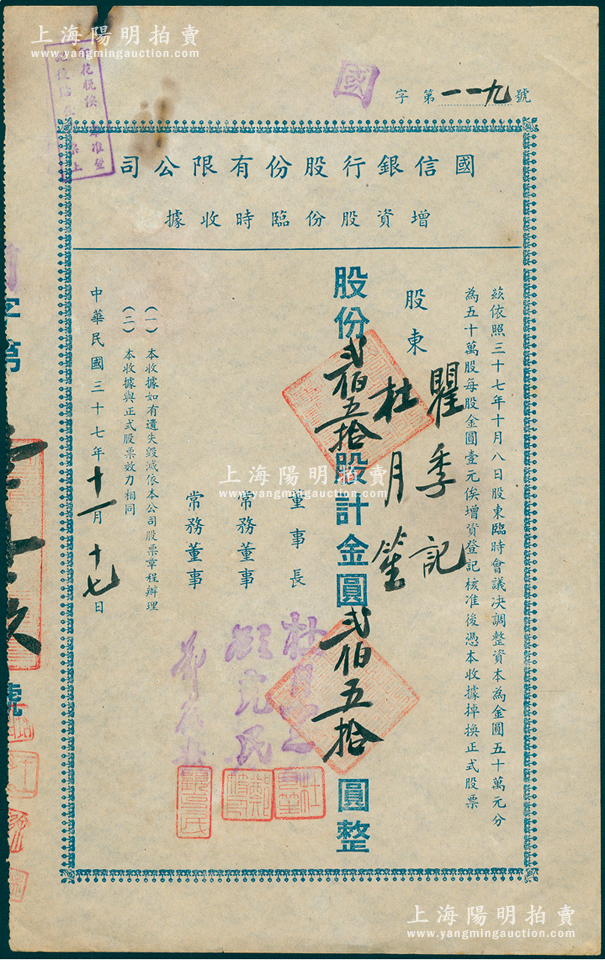 上海陽明拍賣
www.yangmingauction.com
國 字第一一九號
國信銀行股份有限公司
增資股份臨時收據
茲依照三十七年十月八日股東臨時會議決調整資本為金圓五十萬元分
為五十萬股每股金圓壹元俟增資登記核准後憑本收據掉換正式股票
股東 瞿季記
杜月笙
股份貳佰五拾股計金圓貳佰五拾圓整
董事長 杜月笙
常務董事
常務董事
(一)本收據如有遺失毀滅依本公司股票章程辦理
(二)本收據與正式股票效力相同
中華民國三十七年十一月十七日
字第
號
上海陽明拍賣
www.yangmingauction.com
上海陽明拍賣
www.yangmingauction.com